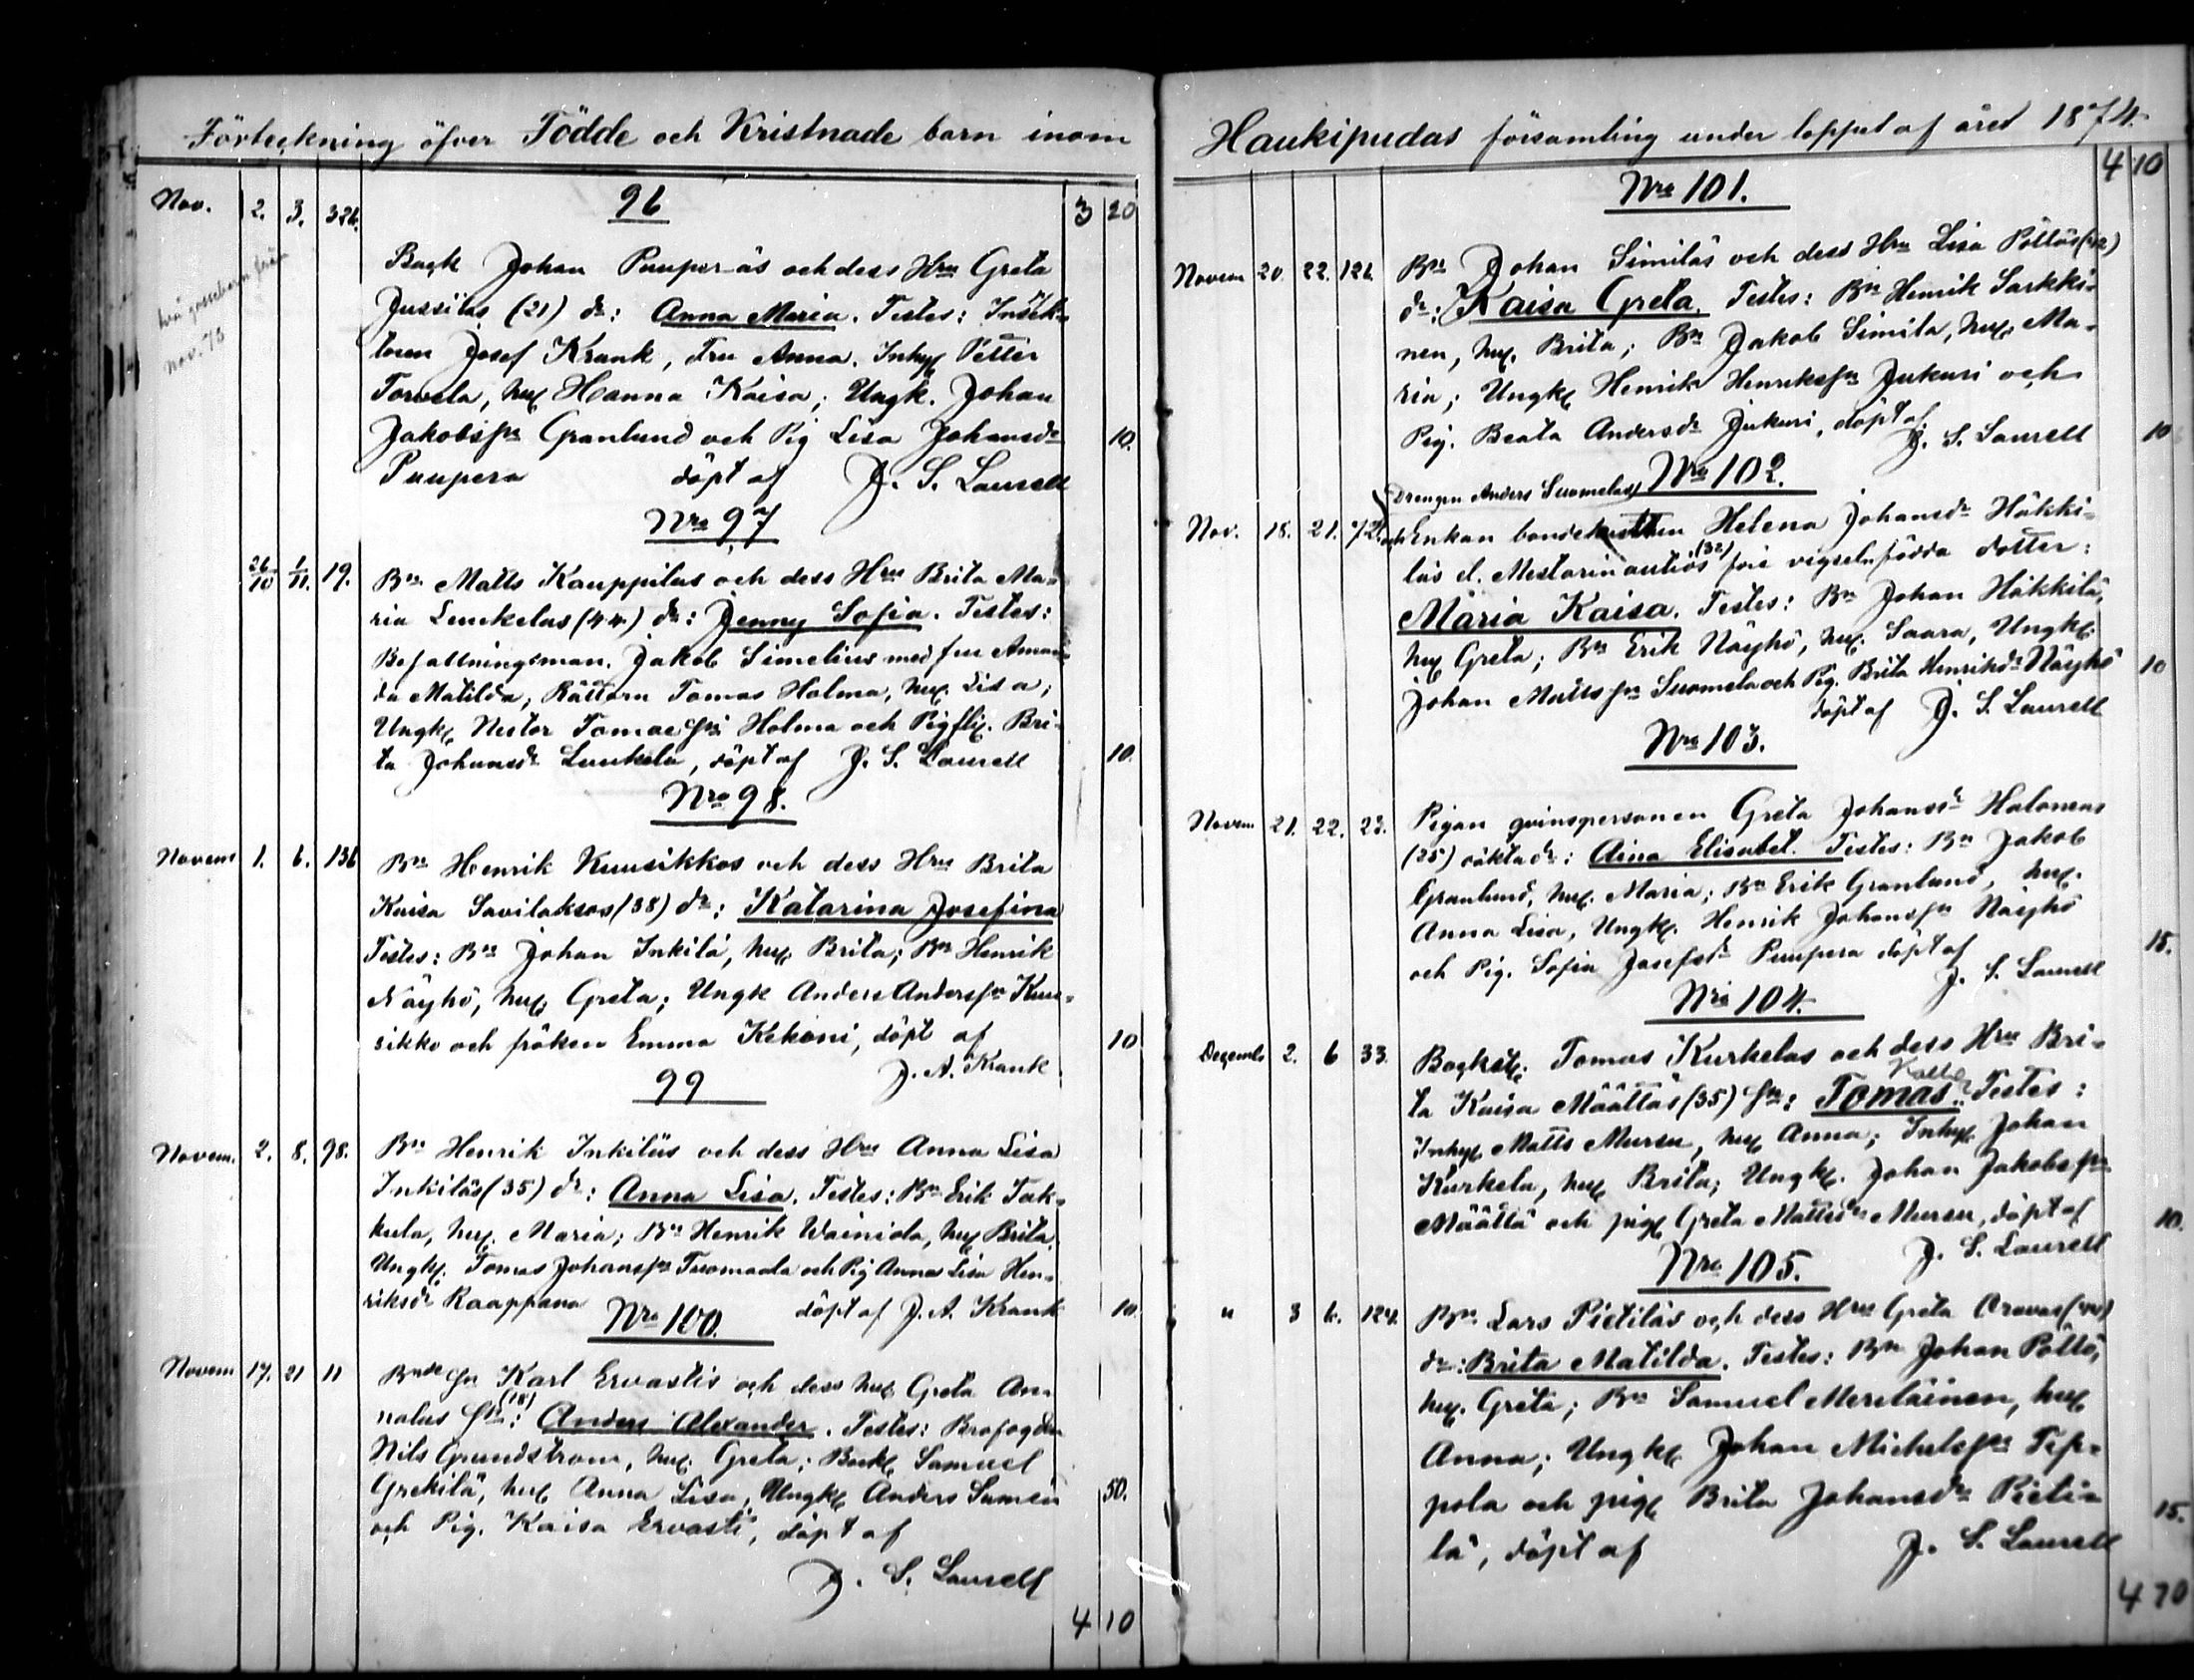 Förteckning öfver Födde och Kristnade barn inom
Nov. 2. 3. 326. 96 3 20
Back Johan Puuperäs och dess Hru Greta
Jussilas (21) dr: Anna Maria. Testes:
Josef Krank, Fru Anna. Inhys Petter
Torvela, hux Hanna Kaisa; Ungk. Johan
Jakobssn Granlund och Pig Lisa Johansdr 10.
Puupera döpt af J. S. Laurell
Nro 97
26/10 1/11. 19. Bn Matts Kauppilas och dess Hru Brita Ma-
ria Luukelas (44) dr: Jenny Sofia. Testes:
Befallningsman. Jakob Simelius med fru Aman-
da Matilda, Rättarn Tomas Holma, hux. Lisa;
Ungk. Nestor Tomassn Holma och Pigflix. Bri-
ta Johansdr Luukela, döpt af J. S. Laurell 10.
Nro 98.
Novem 1. 6. 136 Bn Henrik Kuusikkos och dess Hru Brita
Kaisa Savilaksos (38) dr: Katarina Josefina
Testes: Bn Johan Inkilä, hux Brita; Bn Henrik
Näyhö, hux Greta; Ungk Anders Anderssn Kuu-
sikko och fröken Emma Kekoni, döpt af 10
J. A. Krank
99
Novem. 2. 8. 98. Bn Henrik Inkiläs och dess Hru Anna Lisa
Inkiläs (35) dr: Anna Lisa. Testes: Bn Erik Tak-
kula, hux. Maria; Bn Henrik Wainiola, hux Brita.
Ungk. Tomas Johanssn Tuomaala och Pig Anna Lisa Hen-
riksdr Kaappana döpt af J. A. Krank 10.
Nro 100.
Novem 17. 21 11 Bnde sn Karl Ervastis och dess hux. Greta An-
nalas (18) sn: Anders Alexander. Testes: Brofogden
Nils Grundström, hux. Greta; Back Samuel
Grekilä, hux Anna Lisa, Ungk Anders Sumén 50.
och Pig. Kaisa Ervasti, döpt af
J. S. Laurell
4 10
Haukipudas församling under loppet af året 1874.
4 10
Nro 101.
Novem 20. 22. 126. Bn Johan Similäs och dess Hru Lisa Pöllös (42)
dr: Kaisa Greta. Testes: Bn Henrik Sarkki-
nen, hux. Brita; Bn Jakob Simila, hux. Ma-
ria; Ungk Henrik Henrikssn Jukuri och
Pig. Beata Andersdr Jukuri, döpt af
J. S. Laurell 10
Nro 102.
Drengen Anders Suomelas
Nov. 18. 21. 72. och Enkan Helena Johansdr Häkki-
läs el. Mestarinautios (32) före vigseln födda dotter:
Maria Kaisa. Testes: Bn Johan Häkkilä,
hux Greta; Bn Erik Näyhö, hux. Saara, Ungk.
Johan Mattssn Suomela och Pig. Brita Henriksdr Näyhö 10
döpt af J. S. Laurell
Nro 103.
Novem 21. 22. 23. Pigan qvinspersonen Greta Johansdr Halonens
(25) oäkta dr: Aina Elisabet. Testes: Bn Jakob
Granlund, hux. Maria; Bn Erik Granlund, hux.
Anna Lisa, Ungk. Henrik Johanssn Näyhö
och Pig. Sofia Josefsdr Puupera döpt af 15.
J. S. Laurell
Nro 104.
Decemb 2. 6 33. Backstf. Tomas Kurkelas och dess Hru Bri-
ta Kaisa Määttäs (35) sn: Tomas. Testes:
Inhys Matts Mursu, hux Anna; Inhys Johan
Kurkela, hux Brita; Ungk. Johan Jakobssn
Määttä och pig Greta Mattsdr Mursu, döpt af 10.
J. S. Laurell
Nro 105.
" 3 6. 124. Bn Lars Pietiläs och dess Hru Greta Oravas (44)
dr: Brita Matilda. Testes: Bn Johan Pöllö,
hux. Greta; Bn Samuel Meriläinen, hux
Anna; Ungk Johan Michelssn Tep-
pola och pig Brita Johansdr Pieti-
lä, döpt af J. S. Laurell 15.
4 70